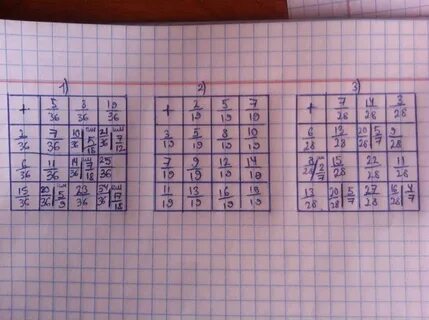 1)
+ 5/36 8/36 19/36
2/36 7/36 10/36 5/18 21/36 7/12
6/36 11/36 14/36 7/18 25/36
15/36 20/36 5/9 23/36 34/36 17/18
2)
+ 2/19 5/19 7/19
3/19 5/19 8/19 10/19
7/19 9/19 12/19 14/19
11/19 13/19 16/19 18/19
3)
+ 7/28 14/28 3/28
6/28 13/28 20/28 5/7 9/28
8/28 2/7 15/28 22/28 11/28
13/28 20/28 5/7 27/28 16/28 4/7